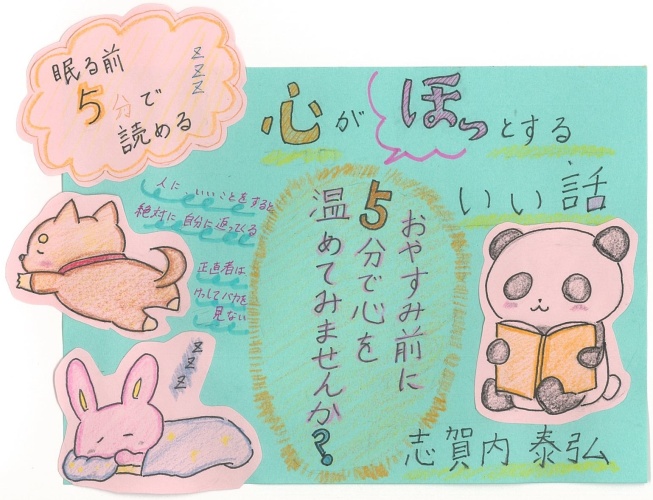 眠る前
5分で
読める
zzz
心がほっとする
いい話
人に、いいことをすると
絶対に自分に返ってくる
正直者は
けっしてバカを
見ない
おやすみ前に
5分で心を
温めてみませんか？
zzz
志賀内 泰弘